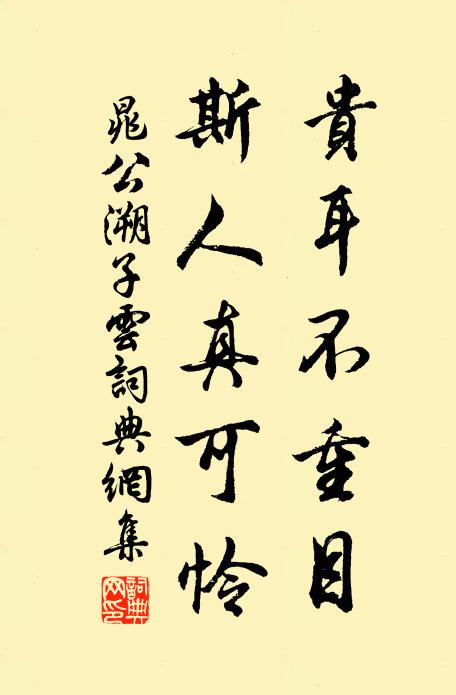 貴耳不重目
斯人真可怜
晁公溯子雲詞典網集
詞典網印